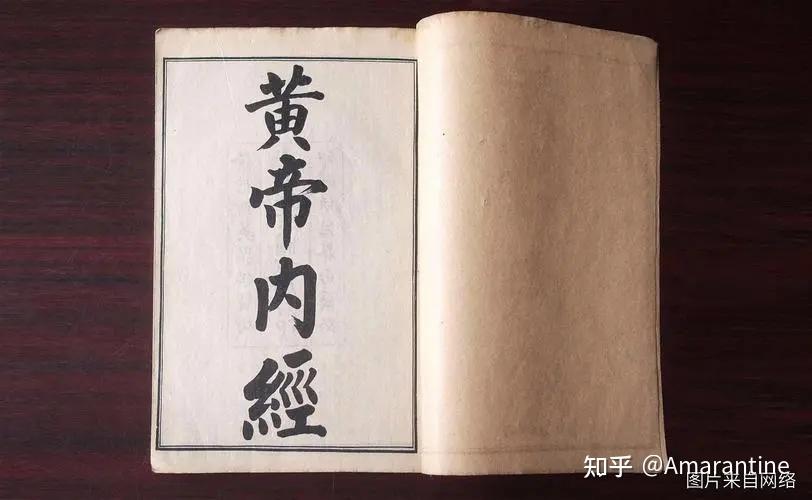 黄帝内經
知乎 @Amarantine
图片来自网络